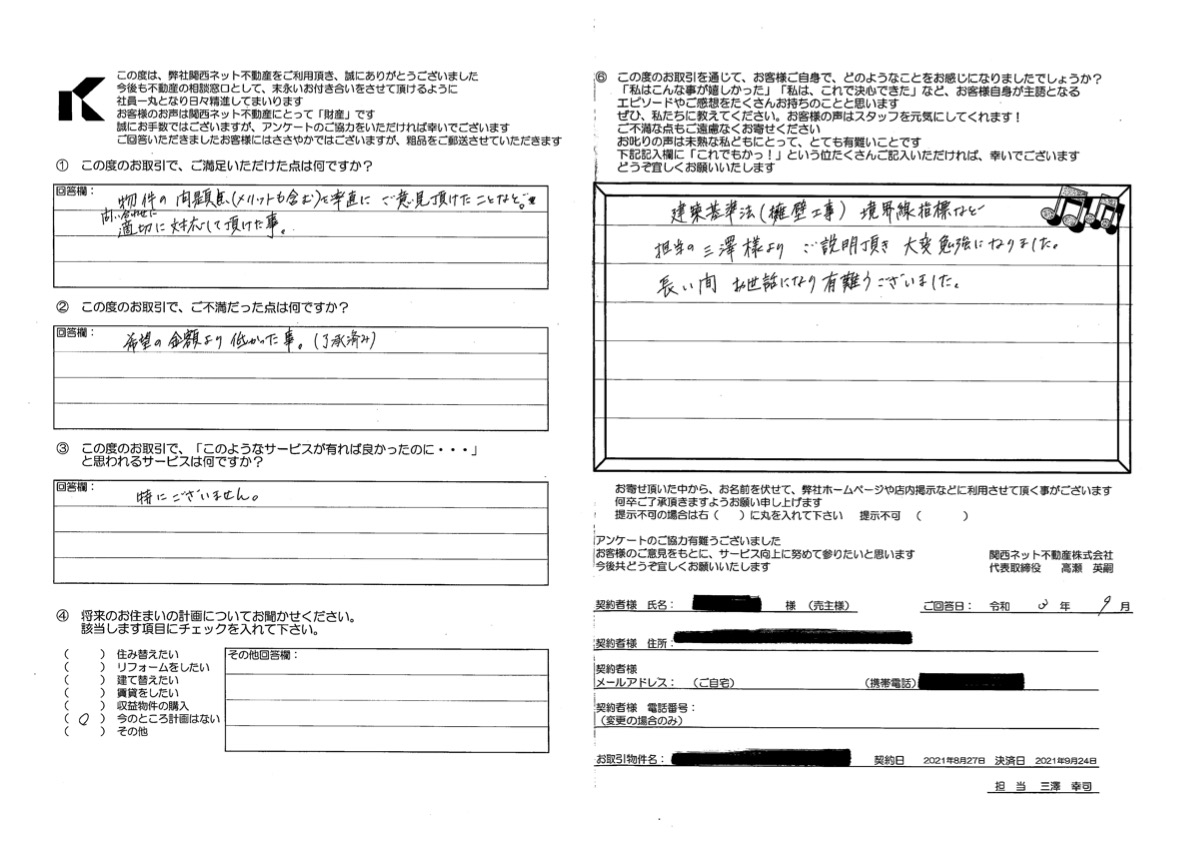 この度は、弊社関西ネット不動産をご利用頂き、誠にありがとうございました
今後も不動産の相談窓口として、末永いお付き合いをさせて頂けるように
社員一丸となり日々精進してまいります
お客様のお声は関西ネット不動産にとって「財産」です
誠にお手数ではございますが、アンケートのご協力をいただければ幸いでございます
ご回答いただきましたお客様にはささやかではございますが、粗品をご郵送させていただきます
① この度のお取引で、ご満足いただけた点は何ですか？
回答欄：
物件の問題点(メリットも含む)を率直にご意見頂けたことなど。
問い合わせに
適切に対応して頂けた事。
② この度のお取引で、ご不満だった点は何ですか？
回答欄：
希望の金額より低かった事。(了承済み)
③ この度のお取引で、「このようなサービスが有れば良かったのに・・・」
と思われるサービスは何ですか？
回答欄：
特にございません。
④ 将来のお住まいの計画についてお聞かせください。
該当します項目にチェックを入れて下さい。
（　　）住み替えたい
（　　）リフォームをしたい
（　　）建て替えたい
（　　）賃貸をしたい
（　　）収益物件の購入
（ ○ ）今のところ計画はない
（　　）その他
その他回答欄：
⑥ この度のお取引を通じて、お客様ご自身で、どのようなことをお感じになりましたでしょうか？
「私はこんな事が嬉しかった」「私は、これで決心できた」など、お客様自身が主語となる
エピソードやご感想をたくさんお持ちのことと思います
ぜひ、私たちに教えてください。お客様の声はスタッフを元気にしてくれます！
ご不満な点もご遠慮なくお寄せください
お叱りの声は未熟な私どもにとって、とても有難いことです
下記記入欄に「これでもかっ！」という位たくさんご記入いただければ、幸いでございます
どうぞ宜しくお願いいたします
建築基準法(擁壁工事) 境界線指標など
担当の三澤様より ご説明頂き 大変勉強になりました。
長い間 お世話になり有難うございました。
お寄せ頂いた中から、お名前を伏せて、弊社ホームページや店内掲示などに利用させて頂く事がございます
何卒ご了承頂きますようお願い申し上げます
提示不可の場合は右（　　）に丸を入れて下さい　提示不可　（　　　）
アンケートのご協力有難うございました
お客様のご意見をもとに、サービス向上に努めて参りたいと思います
今後共どうぞ宜しくお願いいたします
関西ネット不動産株式会社
代表取締役　高瀬　英嗣
契約者様 氏名：　様 （売主様）　ご回答日：　令和 3 年 9 月
契約者様 住所：
契約者様
メールアドレス：　（ご自宅）　（携帯電話）
契約者様 電話番号：
（変更の場合のみ）
お取引物件名：　契約日　2021年8月27日　決済日　2021年9月24日
担　当　三澤　幸司